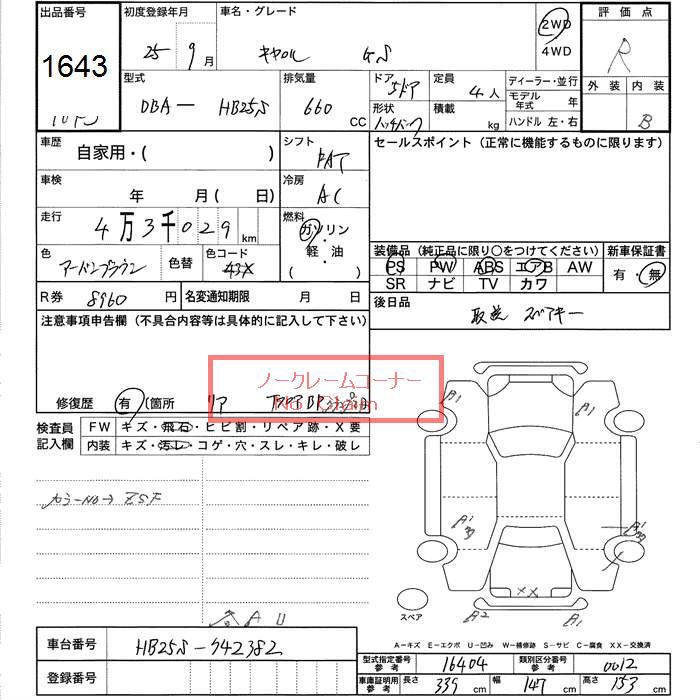 出品番号 初度登録年月 車名・グレード 2WD 評価点
1643 25 9月 キャロル GS 4WD R
型式 排気量 ドア 5ドア 定員 4人 ディーラー・並行 外装 内装
DBA— HB25S 660 CC 形状 ハッチバック 積載 kg モデル年式 年 B
ハンドル 左・右
車歴 自家用・( ) シフト FAT セールスポイント (正常に機能するものに限ります)
車検 年 月( 日) 冷房 AC
走行 4万3千029km 燃料 ガソリン・軽・油 ( )
色 アーバンブラウン 色替 色コード 装備品 (純正品に限り○をつけてください) 新車保証書
PS PW ABS エアB AW 有・無
SR ナビ TV カワ
R券 8960円 名変通知期限 月 日 後日品 取説 スペアキー
注意事項申告欄 (不具合内容等は具体的に記入して下さい)
ノークレームコーナー
No Claim
修復歴 有 (箇所 リア
検査員記入欄 FW キズ・飛石・ヒビ割・リペア跡・X要
内装 キズ・汚レ・コゲ・穴・スレ・キレ・破レ
A1 A1
カラーNo→ZSF
A1 A1
XX
スペア A2 A1
A U
A−キズ E−エクボ U−凹み W−補修跡 S−サビ C−腐食 XX−交換済
車台番号 HB25S-742382
型式指定番号 参考 16404 類別区分番号 参考 0012
登録番号
車庫証明用 参考 長さ 339 cm 幅 147 cm 高さ 153 cm